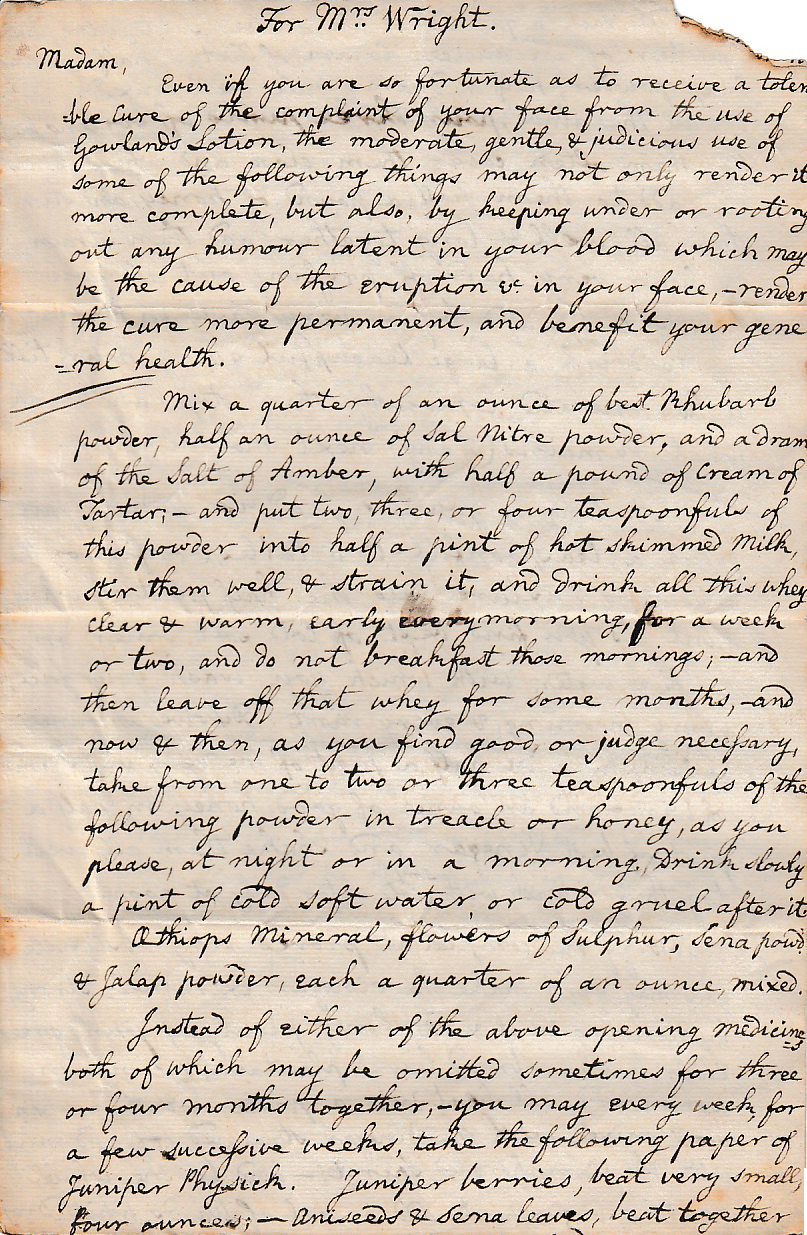 For Mrs. Wright.
Madam,
Even if you are so fortunate as to receive a toler
=ble Cure of the complaint of your face from the use of
Gowland's Lotion, the moderate, gentle, & judicious use of
some of the following things may not only render it
more complete, but also, by keeping under or rooting
out any humour latent in your blood which may
be the cause of the eruption &c. in your face, –render
the cure more permanent, and benefit your gene
=ral health.
Mix a quarter of an ounce of best Rhubarb
powder, half an ounce of Sal Nitre powder, and a dram
of the Salt of Amber, with half a pound of Cream of
Tartar; – and put two, three, or four teaspoonfuls of
this powder into half a pint of hot skimmed Milk,
stir them well, & strain it, and drink all this whey
clear & warm, early every morning, for a week
or two, and do not breakfast those mornings; –and
then leave off that whey for some months, –and
now & then, as you find good, or judge neceſsary,
take from one to two or three teaspoonfuls of the
following powder in treacle or honey, as you
please, at night or in a morning, Drink slowly
a pint of cold soft water, or cold gruel after it.
Æthiops Mineral, flowers of Sulphur, Sena powd.
& Jalap powder, each a quarter of an ounce, mixed.
Instead of either of the above opening medicine
=s
both of which may be omitted sometimes for three
or four months together, –you may every week, for
a few succeſsive weeks, take the following paper of
Juniper Physick. Juniper berries, beat very small,
four ounces; – Aniseeds & Sena leaves, beat together